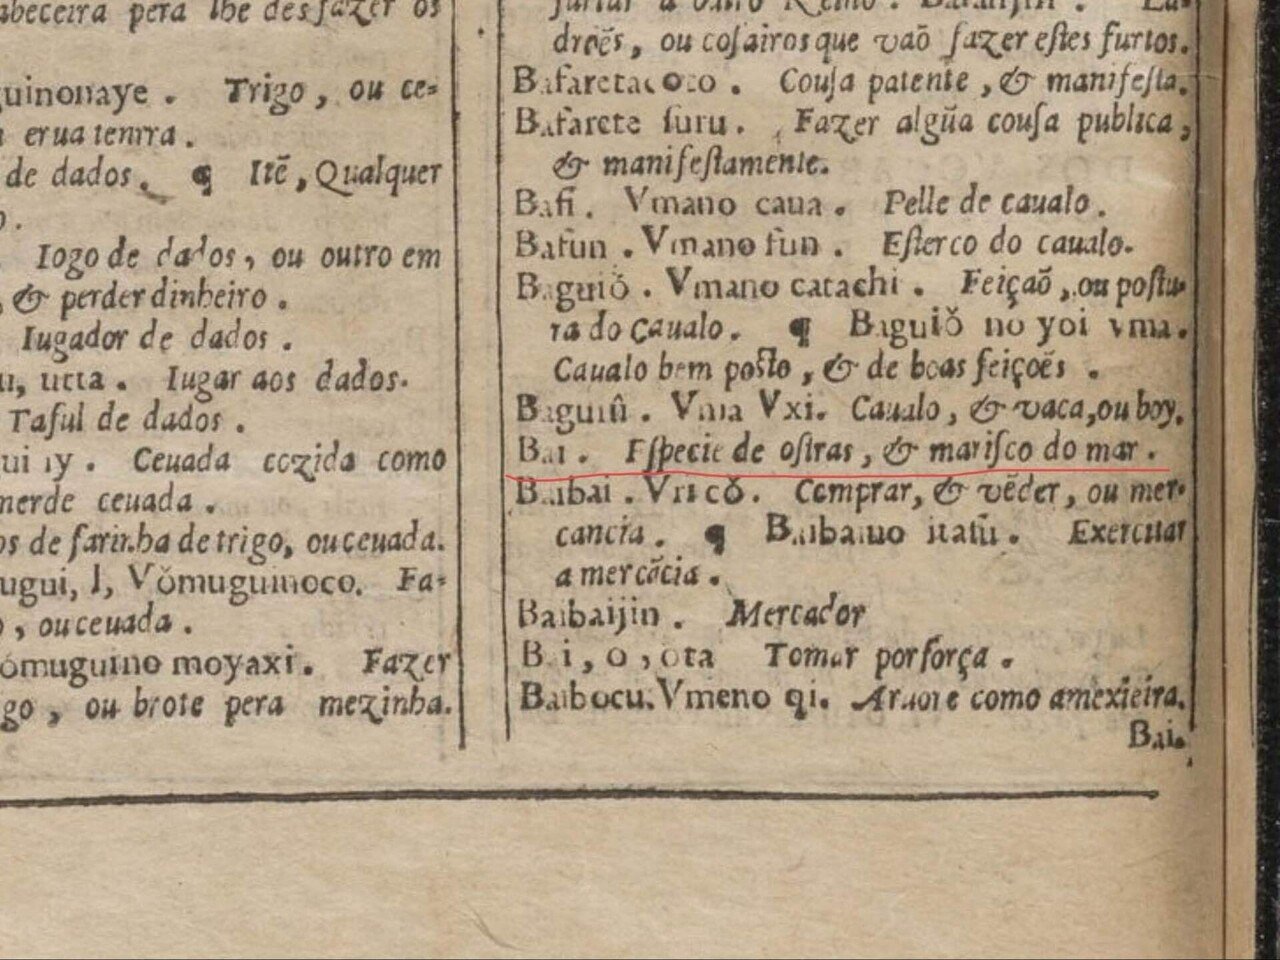 abeceira pera lhe desfazer os
guinonaye . Trigo, ou ce-
erua tenrra .
de dados. ¶ Itẽ, Qualquer
o .
Iogo de dados, ou outro em
, & perder dinheiro .
Iugador de dados .
u, utta . Iugar aos dados.
Taful de dados .
ui iy . Ceuada cozida como
merde ceuada .
os de farinha de trigo, ou ceuada.
ugui, l, Vǒmuguinoco. Fa-
o, ou ceuada .
ǒmuguino moyaxi . Fazer
go, ou brote pera mezinha.
furtar a outro Reino .
drõẽs, ou cosairos que vaõ fazer estes furtos.
Bafaretacoto . Cousa patente, & manifesta.
Bafarete suru . Fazer algũa cousa publica,
& manifestamente.
Bafi . Vmano caua . Pelle de caualo .
Bafun . Vmano fun . Esterco do caualo.
Baguiǒ . Vmano catachi . Feiçaõ, ou postu-
ra do Caualo . ¶ Baguiǒ no yoi vma.
Caualo bem posto, & de boas feiçoẽs .
Baguiŭ . Vma Vxi. Caualo, & vaca, ou boy.
Bai . Especie de ostras, & marisco do mar .
Baibai . Vricǒ . Comprar, & vẽder, ou mer-
cancia . ¶ Baibaiuo itasu . Exercitar
a mercãcia .
Baibaijin . Mercador
Bai, o, ota Tomar por força .
Baibocu. Vmeno qi. Aruore como amexieira.
Bai.